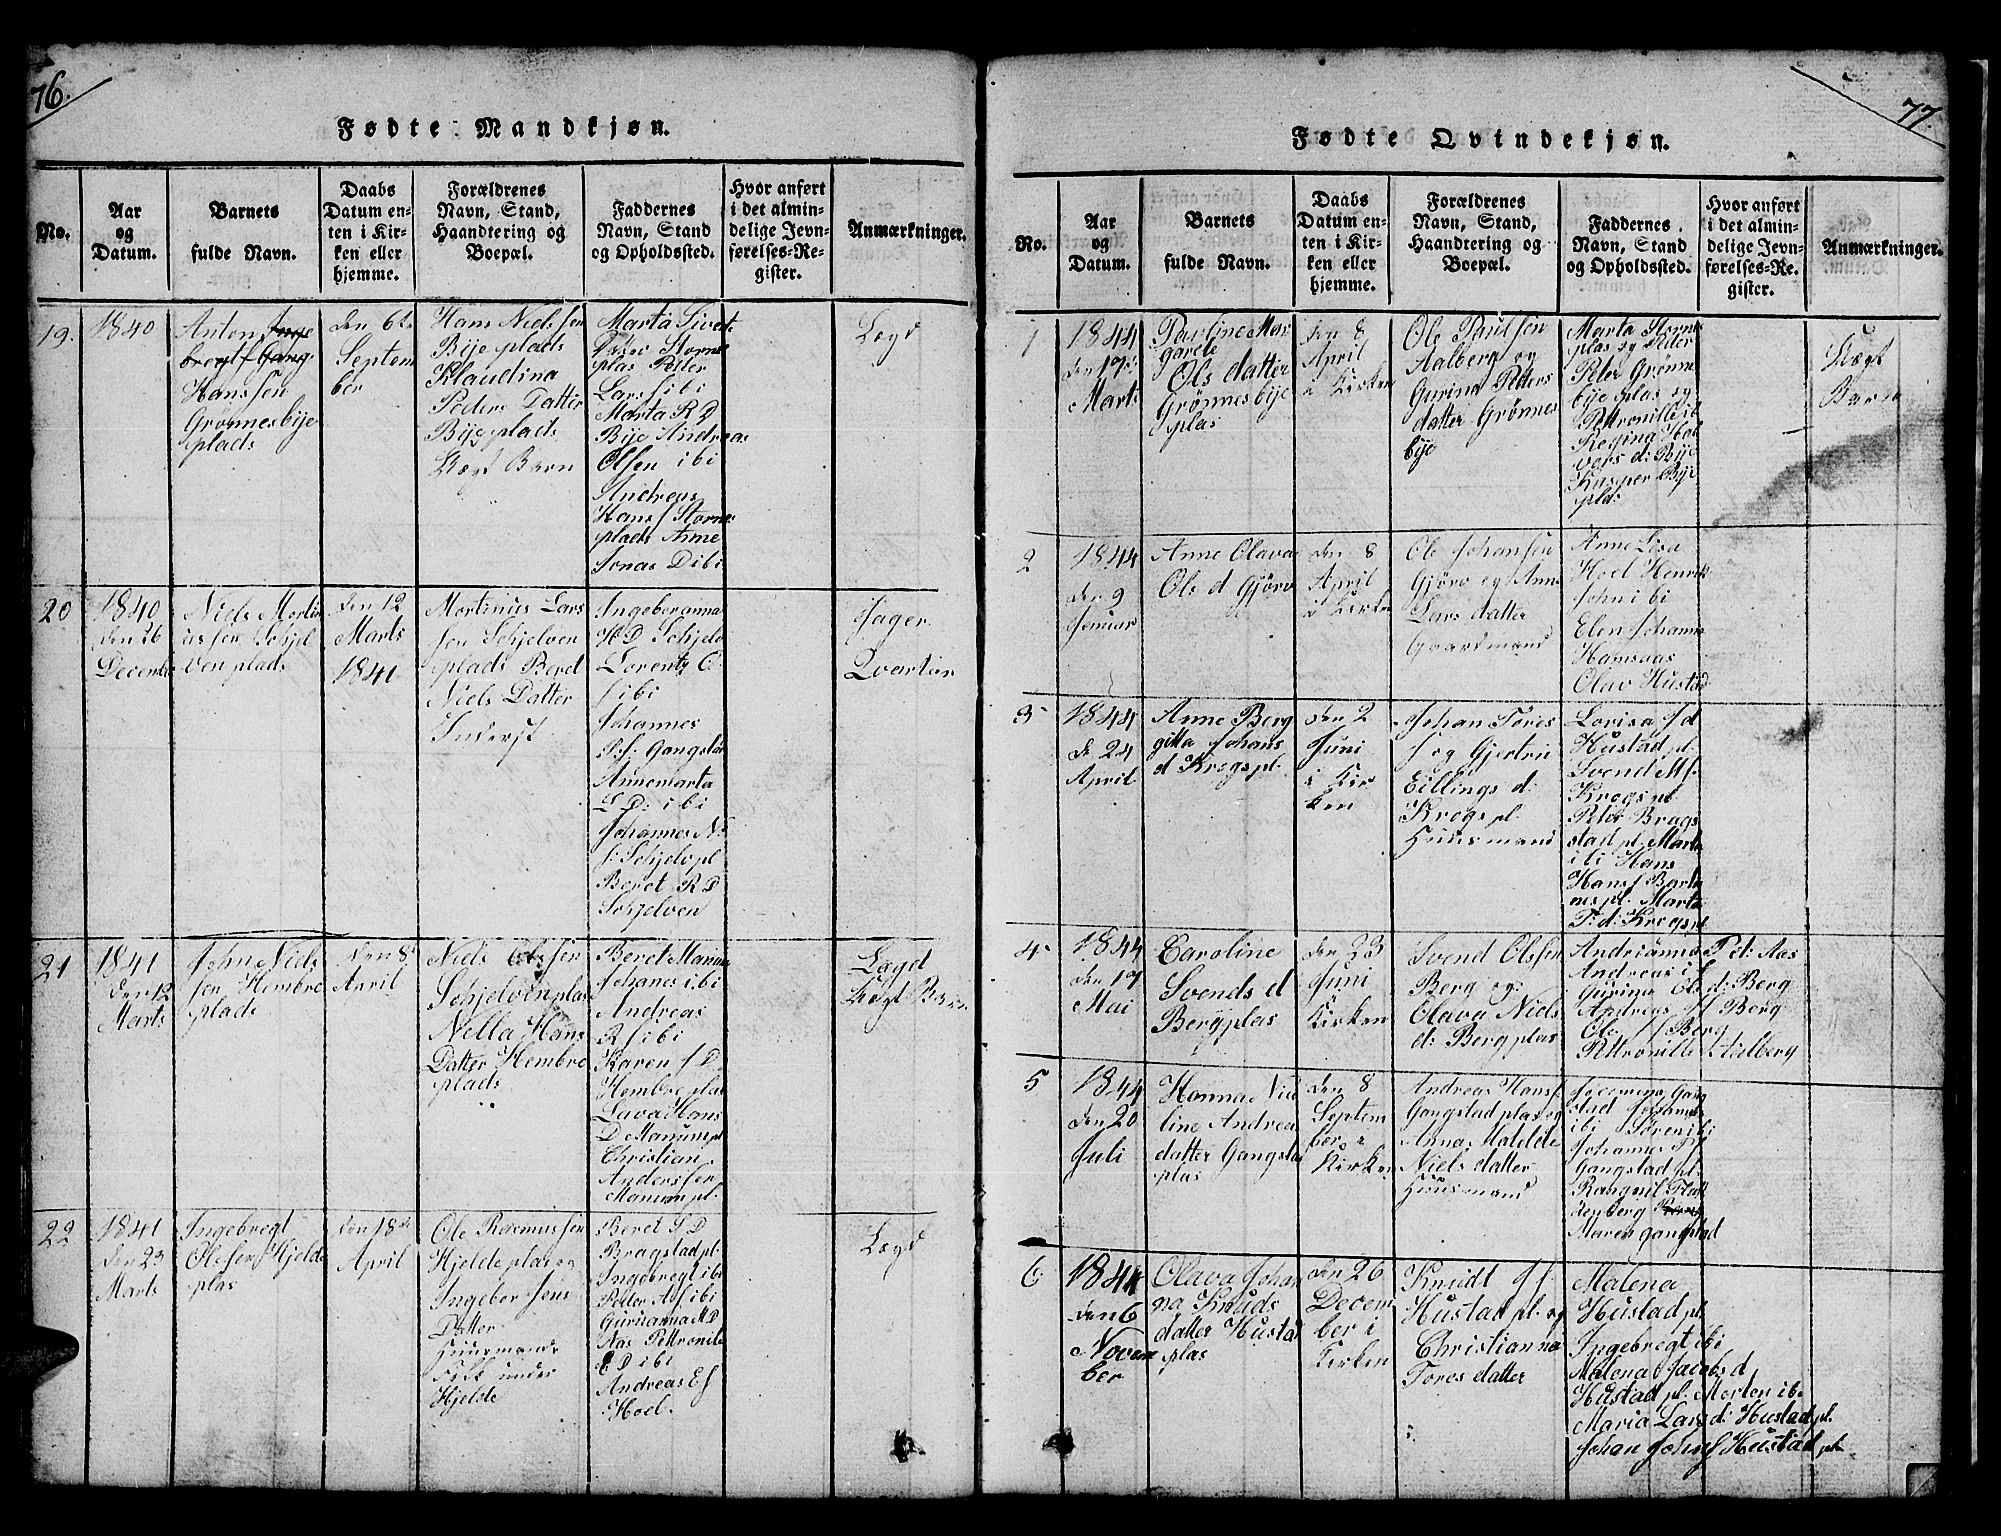 76.
Fødte Mandkjøn.
No.
Aar
og
Datum.
Barnets
fulde Navn.
Daabs
Datum en-
ten i Kir-
ken eller
hjemme.
Forældrenes
Navn, Stand,
Haandtering og
Boepæl.
Faddernes
Navn, Stand
og Opholdssted.
Hvor anført
i det almin-
delige Jevn-
førelses-Re-
gister.
Anmærkninger.
19.
1840
Anton
Hanssen
Grønnesbije
plads
den 6te
Septem
ber
Hans Nielssen
Bije plads
Klaudina
Peders Datter
Bije plads
Uægt Barn
Marta Sivert
Storne
plas Petter
Lars f ibi
Marta R D
Bije Andreas
Olsen ibi
Andreas
Hans f Storne
plads Anne
Jonas D ibi
Lægd
20
1840
den 26
December
Niels Mortin
us sen Schjel
ven plads
den 12
Marts
1841
Mortinus Lars
sen Schjelven
plads Beret
Niels Datter
Inderst
Ingeberanna
H D Schjelv
Lorentz O
f ibi
Johannes
P. f: Gangsta
Annemarta
L D: ibi
Johannes N
f: Schjelv pl
Beret R D
Schjelven
Jager
Qvarteer
21
1841
den 12
Marts
John Niels
sen Hembre
plads
den 8de
April
Niels Olssen
Schjelvenplas
Nella Hans
Datter Hembre
plads
Beret Manum
Johanes ibi
Andreas
R f ibi
Karen J D
Hembre plas
Lava Hans
D Manum pl
Christian
Anderssen
Manum pl.
Lægd
Uægt Barn
22
1841
den 23
Marts
Ingebregt
Olssen Hjelde
plas
den 18de
April
Ole Rasmussen
Hjelde plas og
Ingebor Jens
Datter
Huusmand
Folk under
Hjelde
Beret S D
Bragstad pl.
Ingebregt ibi
Petter A f ibi
Gurianna M D
Aas Pettronile
E D ibi
Andreas E f
Hoel.
Lægd
77.
Fødte Qvindekjøn.
No.
Aar
og
Datum.
Barnets
fulde Navn.
Daabs
Datum en-
ten i Kir-
ken eller
hjemme.
Forældrenes
Navn, Stand,
Haandtering og
Boepæl.
Faddernes
Navn, Stand
og Opholdssted.
Hvor anført
i det almin-
delige Jevn-
førelses-Re-
gister.
Anmærkninger.
1
1844
den 17de
Marts
Pauline Mar
garete
Ols datter
Grønnesbije
plas
den 8
April
i Kirken
Ole Paulsen
Aalberg og
Gurina Peters
datter Grønnes
bije
Marta Storne
plas og Peter
Peter Grønne
bije plas og
Pettronille ibi
Regina Hal
vors d: Bije
Kasper Bije
plas
Uægt
Barn
2
1844
den 9
Januar
Anne Olava
Ols d Gjørv
den 8
April
i Kirken
Ole Johansen
Gjørv og Anne
Lars datter
Gaardmand
Anne Lisa
Hoel Henrik
John ibi
Elen Johanna
Hamsaas
Olav Hustad
3
1844
d 24
April
Anne Berg
gitta Johans
d Krogs pl.
den 2
Juni
i Kir
ken
Johan Tores
f og Gjertru
Eillings d:
Krogs pl.
Huusmand
Lovisa J d
Hustad pl.
Svend M f.
Krogs pl
Peter Brags
stad pl. Marta
ibi Hans
Hans f Bartn
nes pl. Marta
T: d: Krogs pl
4
1844
den 17
Mai
Caroline
Svends d
Bergplas
den 23
Juni
Kirken
Svend Olssen
Berg og
Olava Niels
d: Bergplas
Andrianna P d: Aas
Andreas ibi
Gurina Ols d: Berg
Andreas J f Berg
Ole J f Berg
Pettronille Aalberg
5
1844
den 20
Juli
Hanna Niu
line Andrea
datter Gangstad
plas
den 8
Septem
ber i
Kirken
Andreas Hans f
Gangstad plas og
Anna Malelde
Niels datter
Huusmand
Gang
stad Johannes
ibi Søren ibi
Johannes P f
Gangstad pl.
Rangnil Flak
denberg
Maren gangstad
6
1844
den 6
Novem
ber
Olava Johan
na Knuds
datter Hustad
plas
den 26
Decem
ber i
Kirken
Knudt J f
Hustad pl. og
Christianna
Tores datter
Malena
Hustad pl.
Ingebregt ibi
Malena Jacobs d
Hustad pl. Morten ibi
Maria Lars d: Hustad pl.
Johan John f Hustad pl.